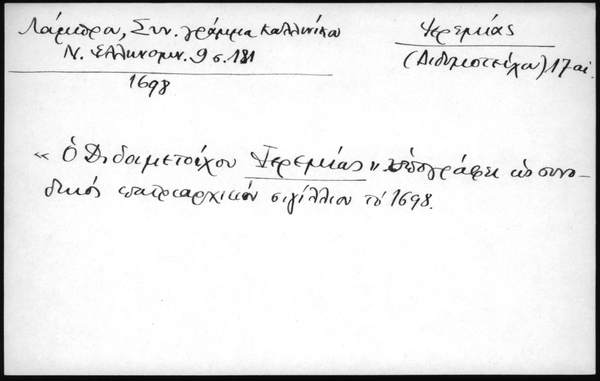 Λάμπρου, Συν. γράμμα Καλλινίκου
Ν. Ελληνομν. 9 σ. 181
1698
Ἱερεμίας
(Διδυμοτείχου) 17 αἰ.
« Ὁ Διδυμοτοίχου Ἱερεμίας » ὑπογράφει ὡς συνο-
δικός πατριαρχικόν σιγίλλιον τό 1698.